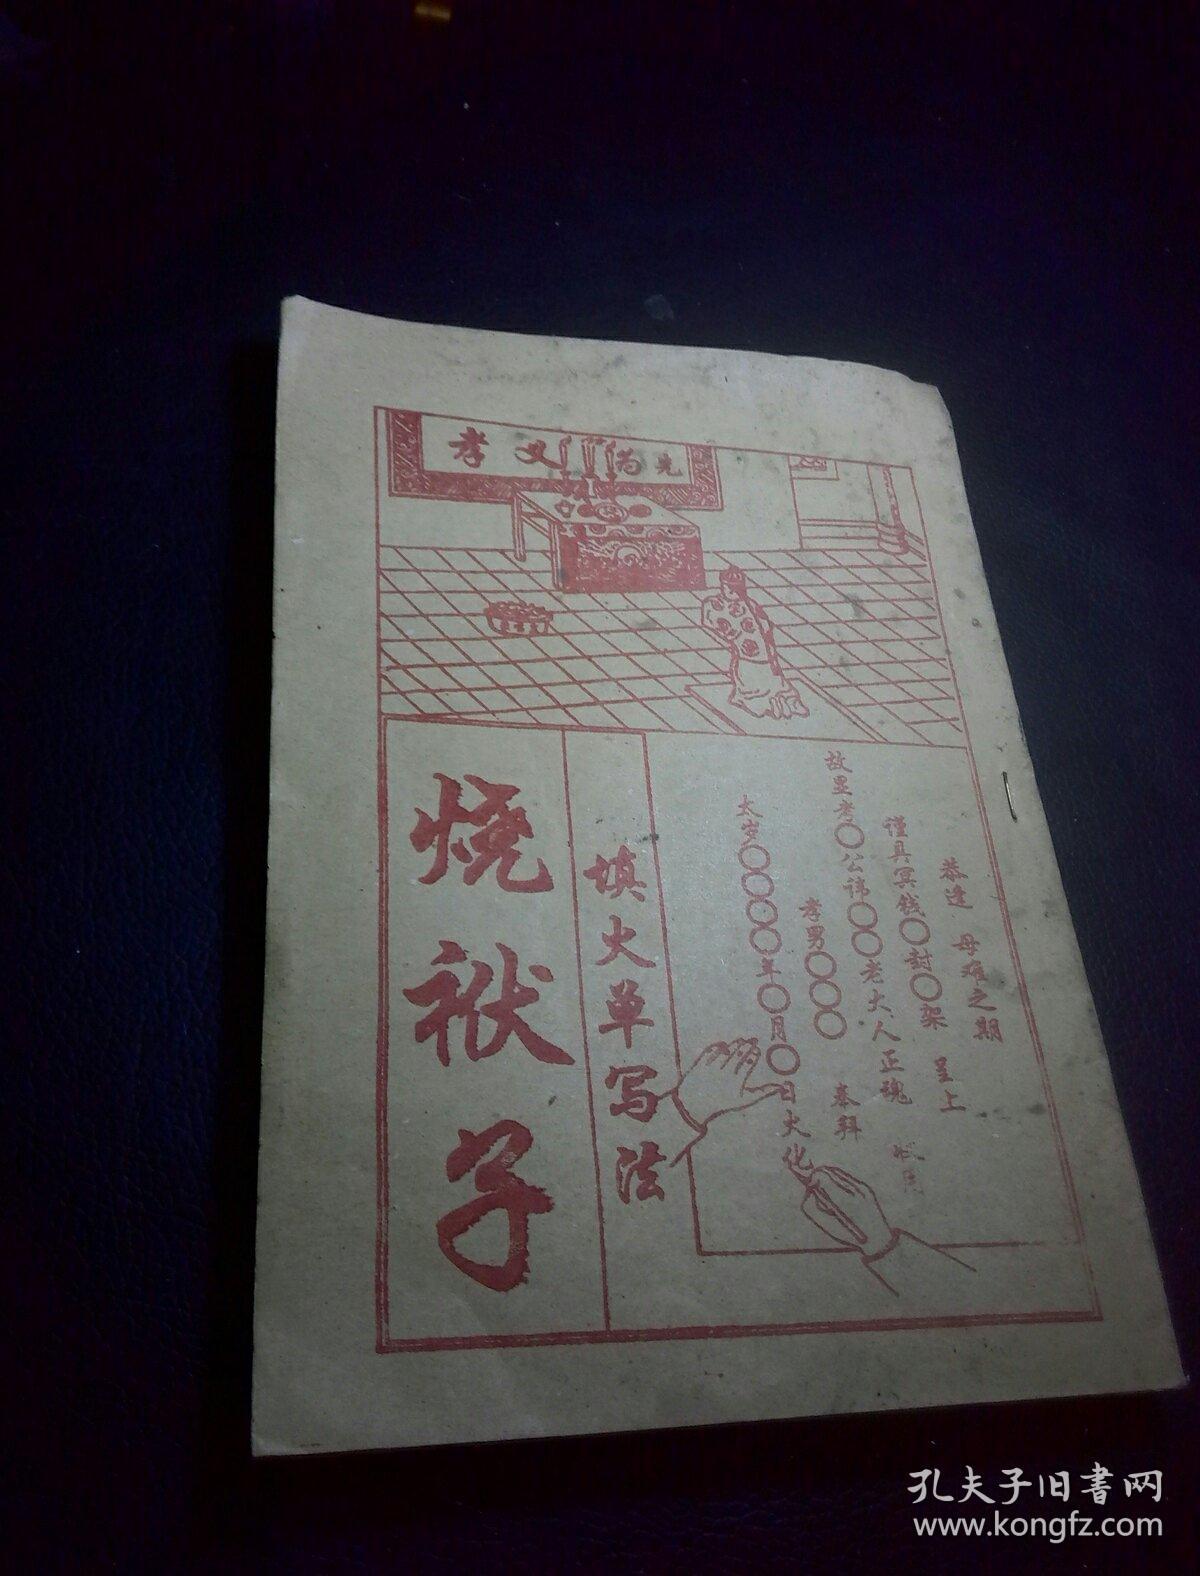 孝义为先
烧袱子
填火单写法
恭逢 母难之期
谨具冥钱〇封〇架 呈上
故显考〇公讳〇〇老大人正魂 收用
孝男〇〇〇 奉拜
太岁〇〇〇〇年〇月〇日火化
孔夫子旧書网
www.kongfz.com